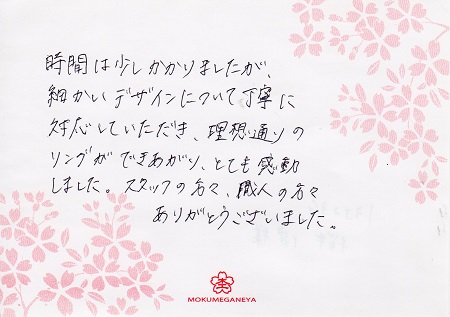 時間は少しかかりましたが、
細かいデザインについて丁寧に
対応していただき、理想通りの
リングができあがり、とても感動
しました。スタッフの方々、職人の方々
ありがとうございました。
MOKUMEGANEYA